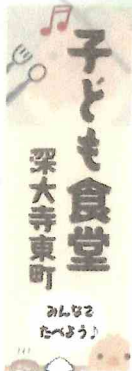 子ども食堂
深大寺東町
みんなで
たべよう♪